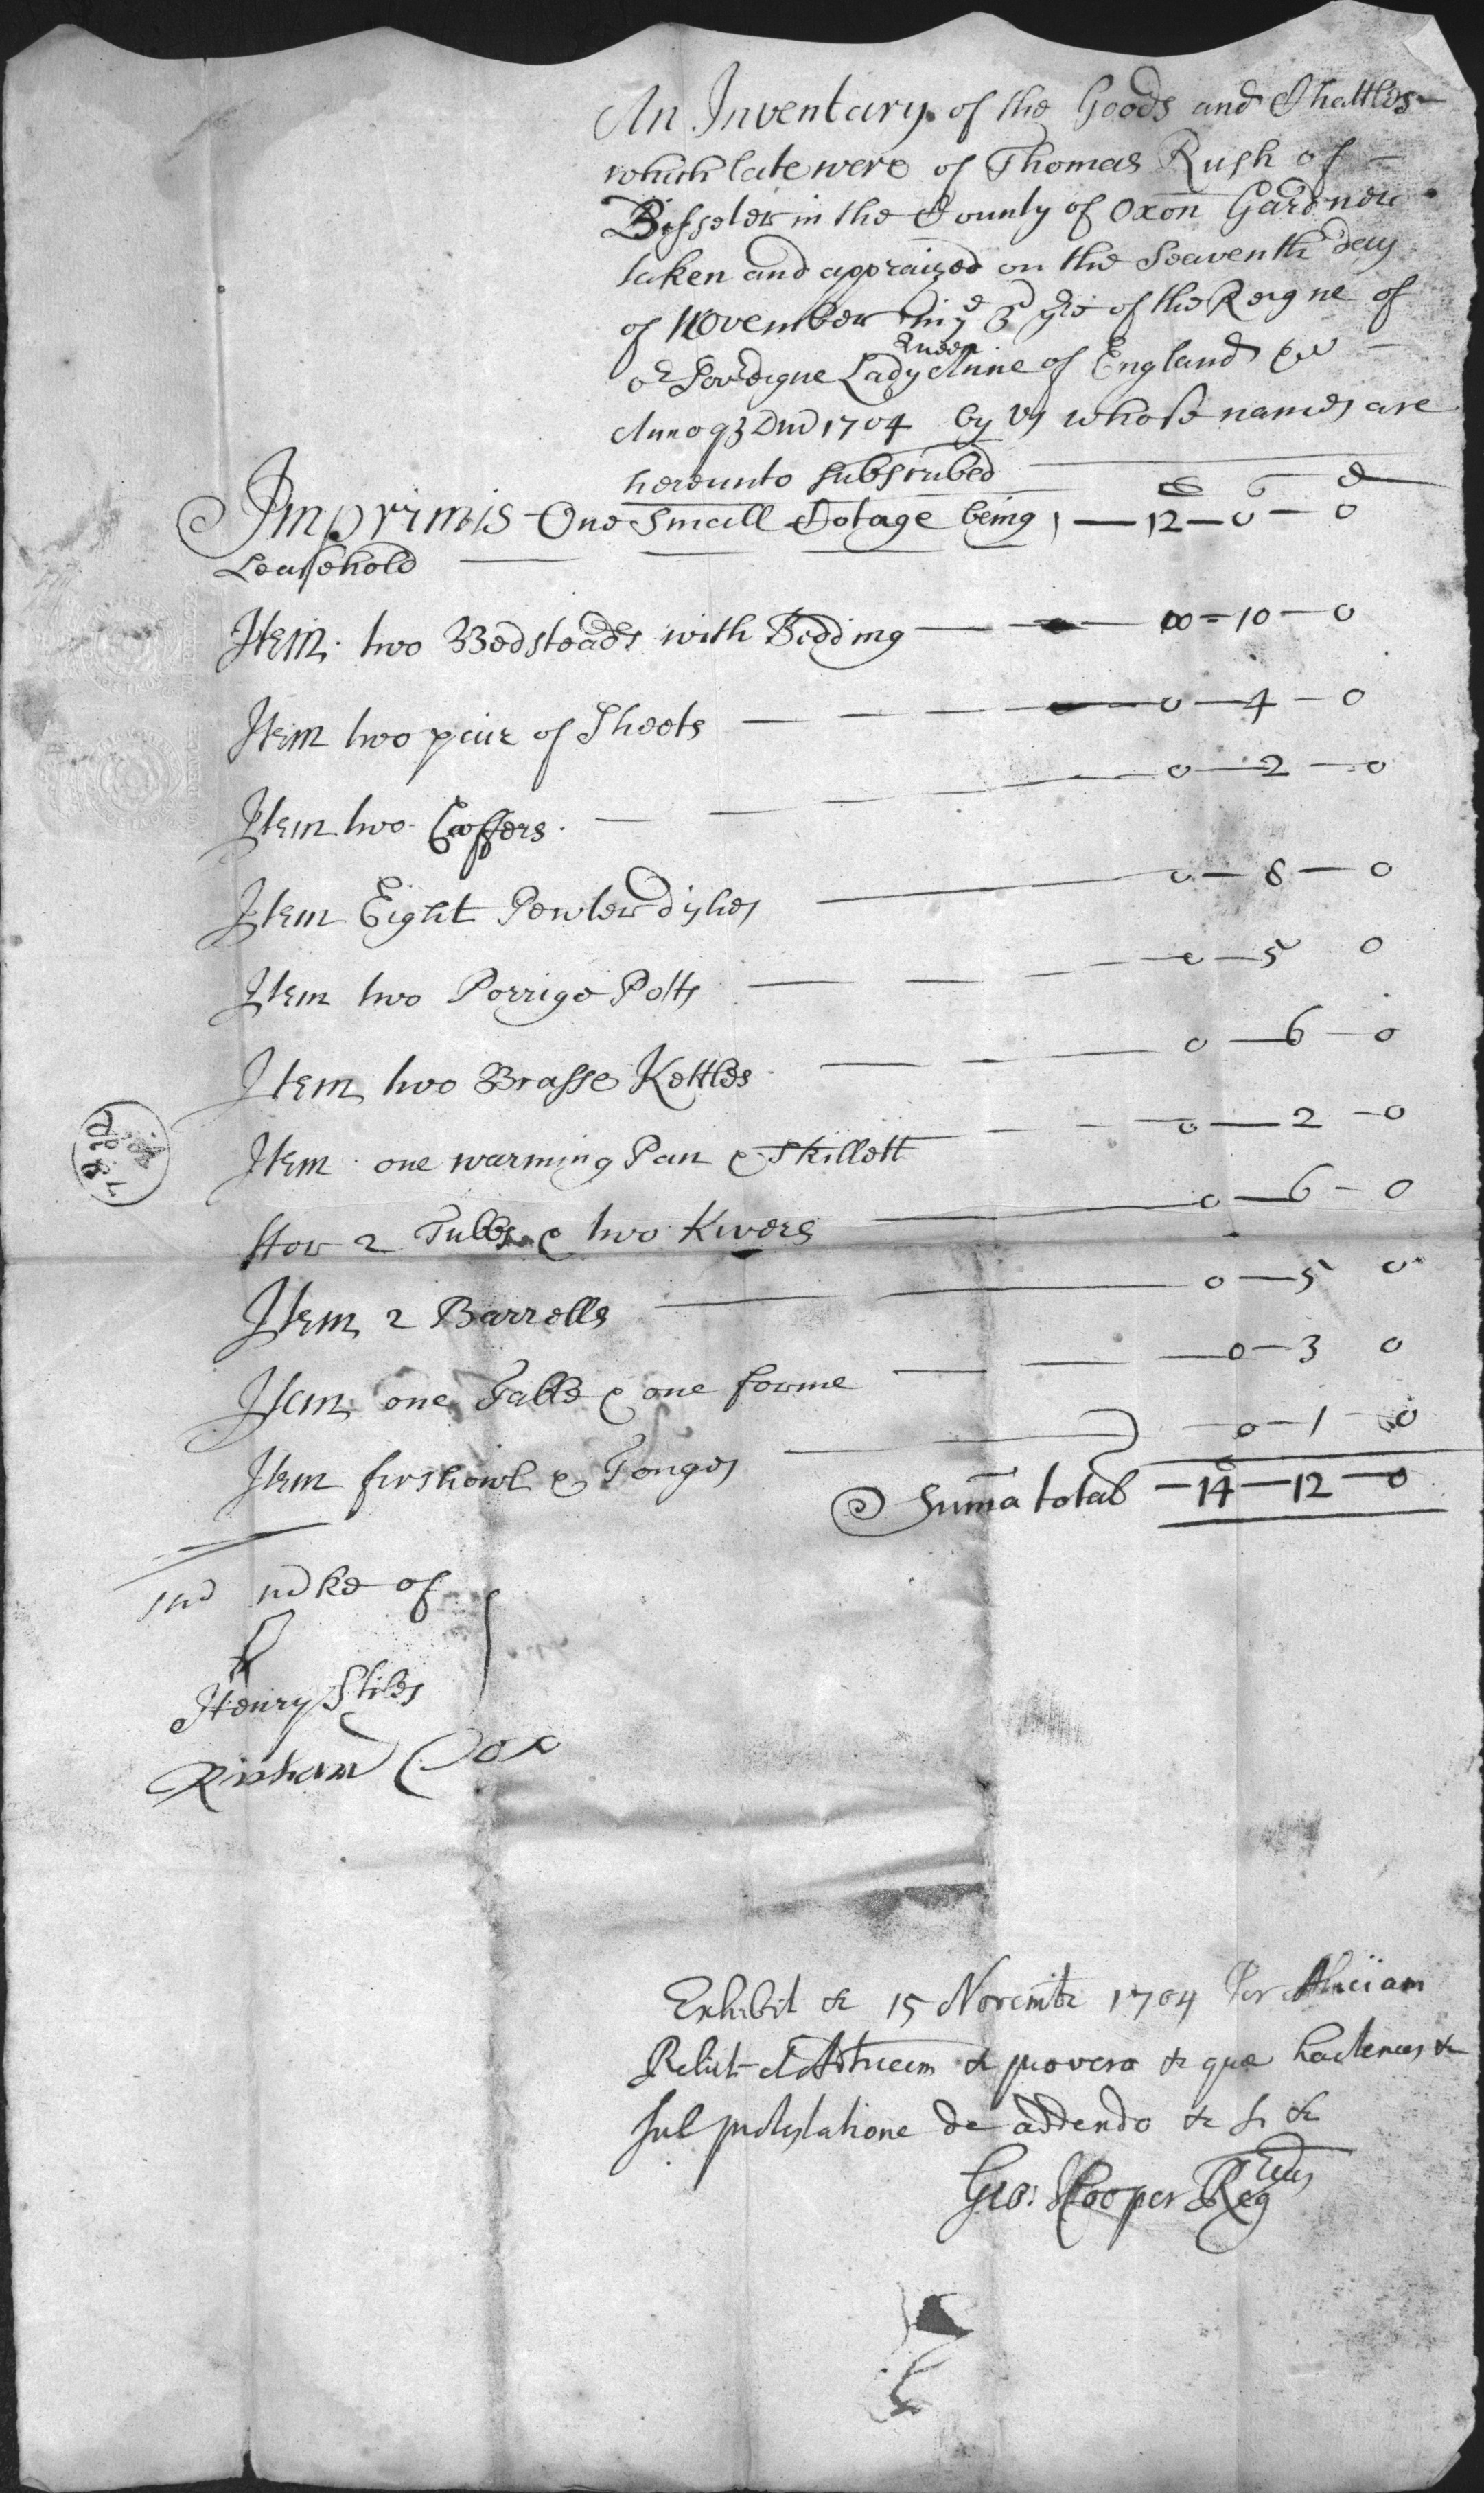 An Inventary of the Goods and Chattles
which late were of Thomas Rush of
Bisseter in the County of Oxon Gardner
taken and appraized on the Seaventh day
of November in ye 3d yre of the Reigne of
or Sovreigne Lady Queen Anne of England &c
Annoq3 Dni 1704 by us whose names are
hereunto subscribed
Imprimis One Small Cotage being 12—0—0
Leasehold
Item two Bedsteads with Bedding 00—10—0
Item two pair of Sheets 0—4—0
Item two Coffers 0—2—0
Item Eight Pewter dishes 0—8—0
Item two Porrige Potts 0—5 0
Item two Brasse Kettles 0—6—0
Item one warming Pan & Skillett 0—2—0
Itm 2 Tubbs & two Kivers 0—6—0
Item 2 Barrells 0—5 0
Item one Table & one forme 0—3 0
Item firshowl & Tonges 0—1 0
Suma total 14—12—0
mke of
Henry Stiles
Richard Cox
Exhibit &c 15 Novembr 1704 Per Aliciam
Relict et &c pro vero &c que hactenus &c
sub protestatione de addendo &c si &c
Geo: Cooper Reg